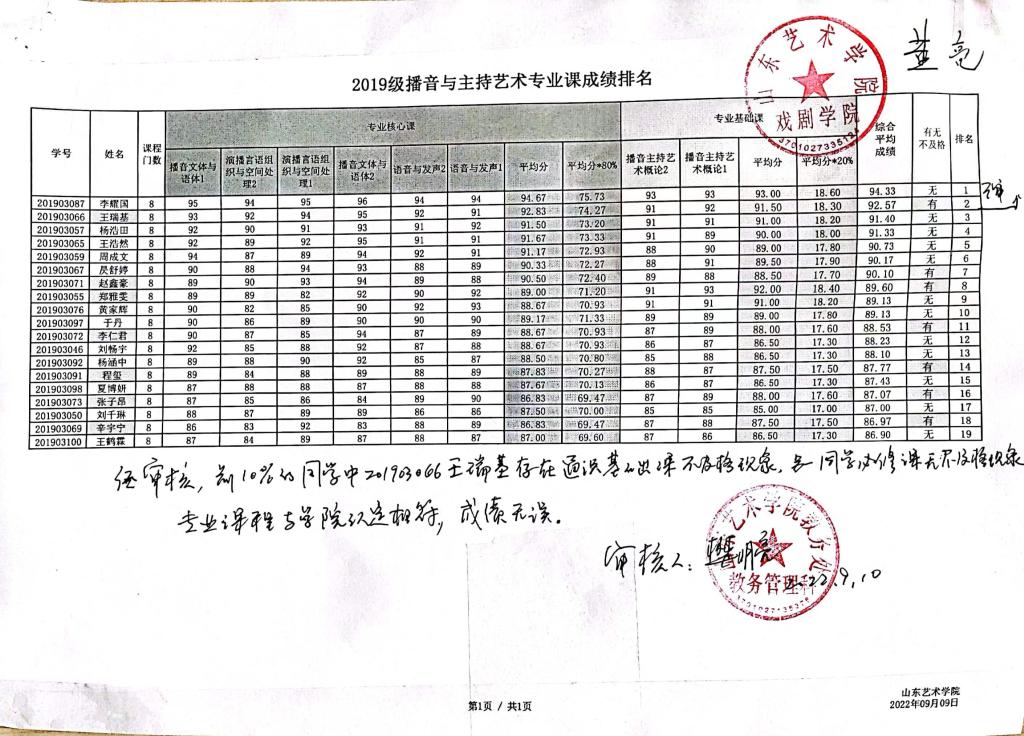 黄亮
山东艺术学院
戏剧学院
2019级播音与主持艺术专业课成绩排名
学号 姓名 课程门数 专业核心课 专业基础课 综合平均成绩 有无不及格 排名
播音文体与语体1 演播言语组织与空间处理2 演播言语组织与空间处理1 播音文体与语体2 语音与发声2 语音与发声1 平均分 平均分*80% 播音主持艺术概论2 播音主持艺术概论1 平均分 平均分*20%
201903087 李耀国 8 95 94 95 96 94 94 94.67 75.73 93 93 93.00 18.60 94.33 无 1
201903066 王瑞基 8 93 92 94 95 92 91 92.83 74.27 91 92 91.50 18.30 92.57 有 2
201903057 杨浩田 8 92 90 91 93 91 92 91.50 73.20 91 91 91.00 18.20 91.40 无 3
201903065 王浩然 8 92 89 92 95 91 91 91.67 73.33 91 89 90.00 18.00 91.33 无 4
201903059 周成文 8 94 87 89 94 92 91 91.17 72.93 88 90 89.00 17.80 90.73 无 5
201903067 昃舒婷 8 90 88 94 93 88 89 90.33 72.27 88 91 89.50 17.90 90.17 无 6
201903071 赵鑫豪 8 89 90 93 94 89 88 90.50 72.40 89 88 88.50 17.70 90.10 有 7
201903055 郑雅雯 8 89 89 82 92 90 92 89.00 71.20 93 91 92.00 18.40 89.60 有 8
201903076 黄家辉 8 90 82 85 90 92 93 88.67 70.93 91 91 91.00 18.20 89.13 无 9
201903097 于丹 8 90 86 89 90 90 90 89.17 71.33 88 90 89.00 17.80 89.13 无 10
201903072 李仁君 8 90 87 85 94 87 89 88.67 70.93 87 89 88.00 17.60 88.53 有 11
201903046 刘畅宇 8 92 85 88 92 87 88 88.67 70.93 86 87 86.50 17.30 88.23 无 12
201903092 杨涵中 8 89 88 90 92 85 87 88.50 70.80 85 88 86.50 17.30 88.10 无 13
201903091 程玺 8 89 84 89 89 88 88 87.83 70.27 88 87 87.50 17.50 87.77 有 14
201903098 夏博妍 8 87 88 88 87 88 88 87.67 70.13 86 87 86.50 17.30 87.43 无 15
201903073 张子昂 8 87 85 86 84 89 90 86.83 69.47 87 89 88.00 17.60 87.07 有 16
201903050 刘千琳 8 88 87 87 89 86 88 87.50 70.00 85 85 85.00 17.00 87.00 无 17
201903069 辛宇宁 8 86 83 92 83 88 89 86.83 69.47 88 87 87.50 17.50 86.97 有 18
201903100 王鹤霖 8 87 84 89 87 88 87 87.00 69.60 87 86 86.50 17.30 86.90 无 19
经审核，前10%的同学中201903066王瑞基存在通识基础课不及格现象，其同学必修课无不及格现象
专业课程与学院认定相符，成绩无误。
审核人：
2022.9.10
艺术学院教务处
教务管理科
第1页 / 共1页
山东艺术学院
2022年09月09日